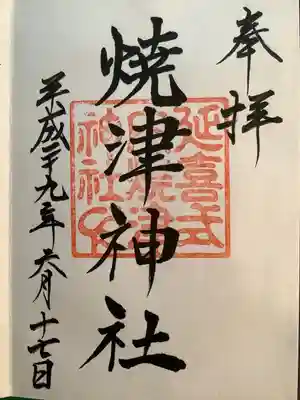 奉拝
焼津神社
平成二十九年六月十七日
延喜式